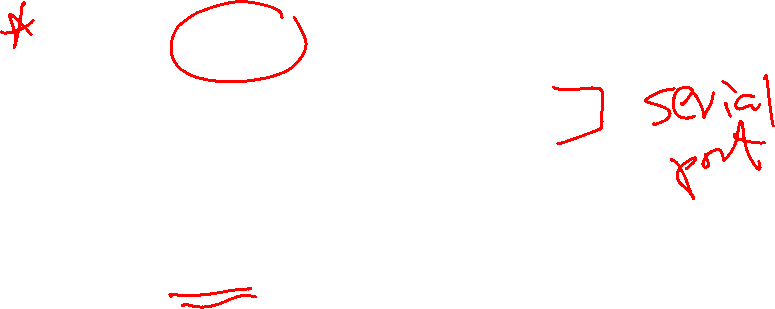 *
serial
port